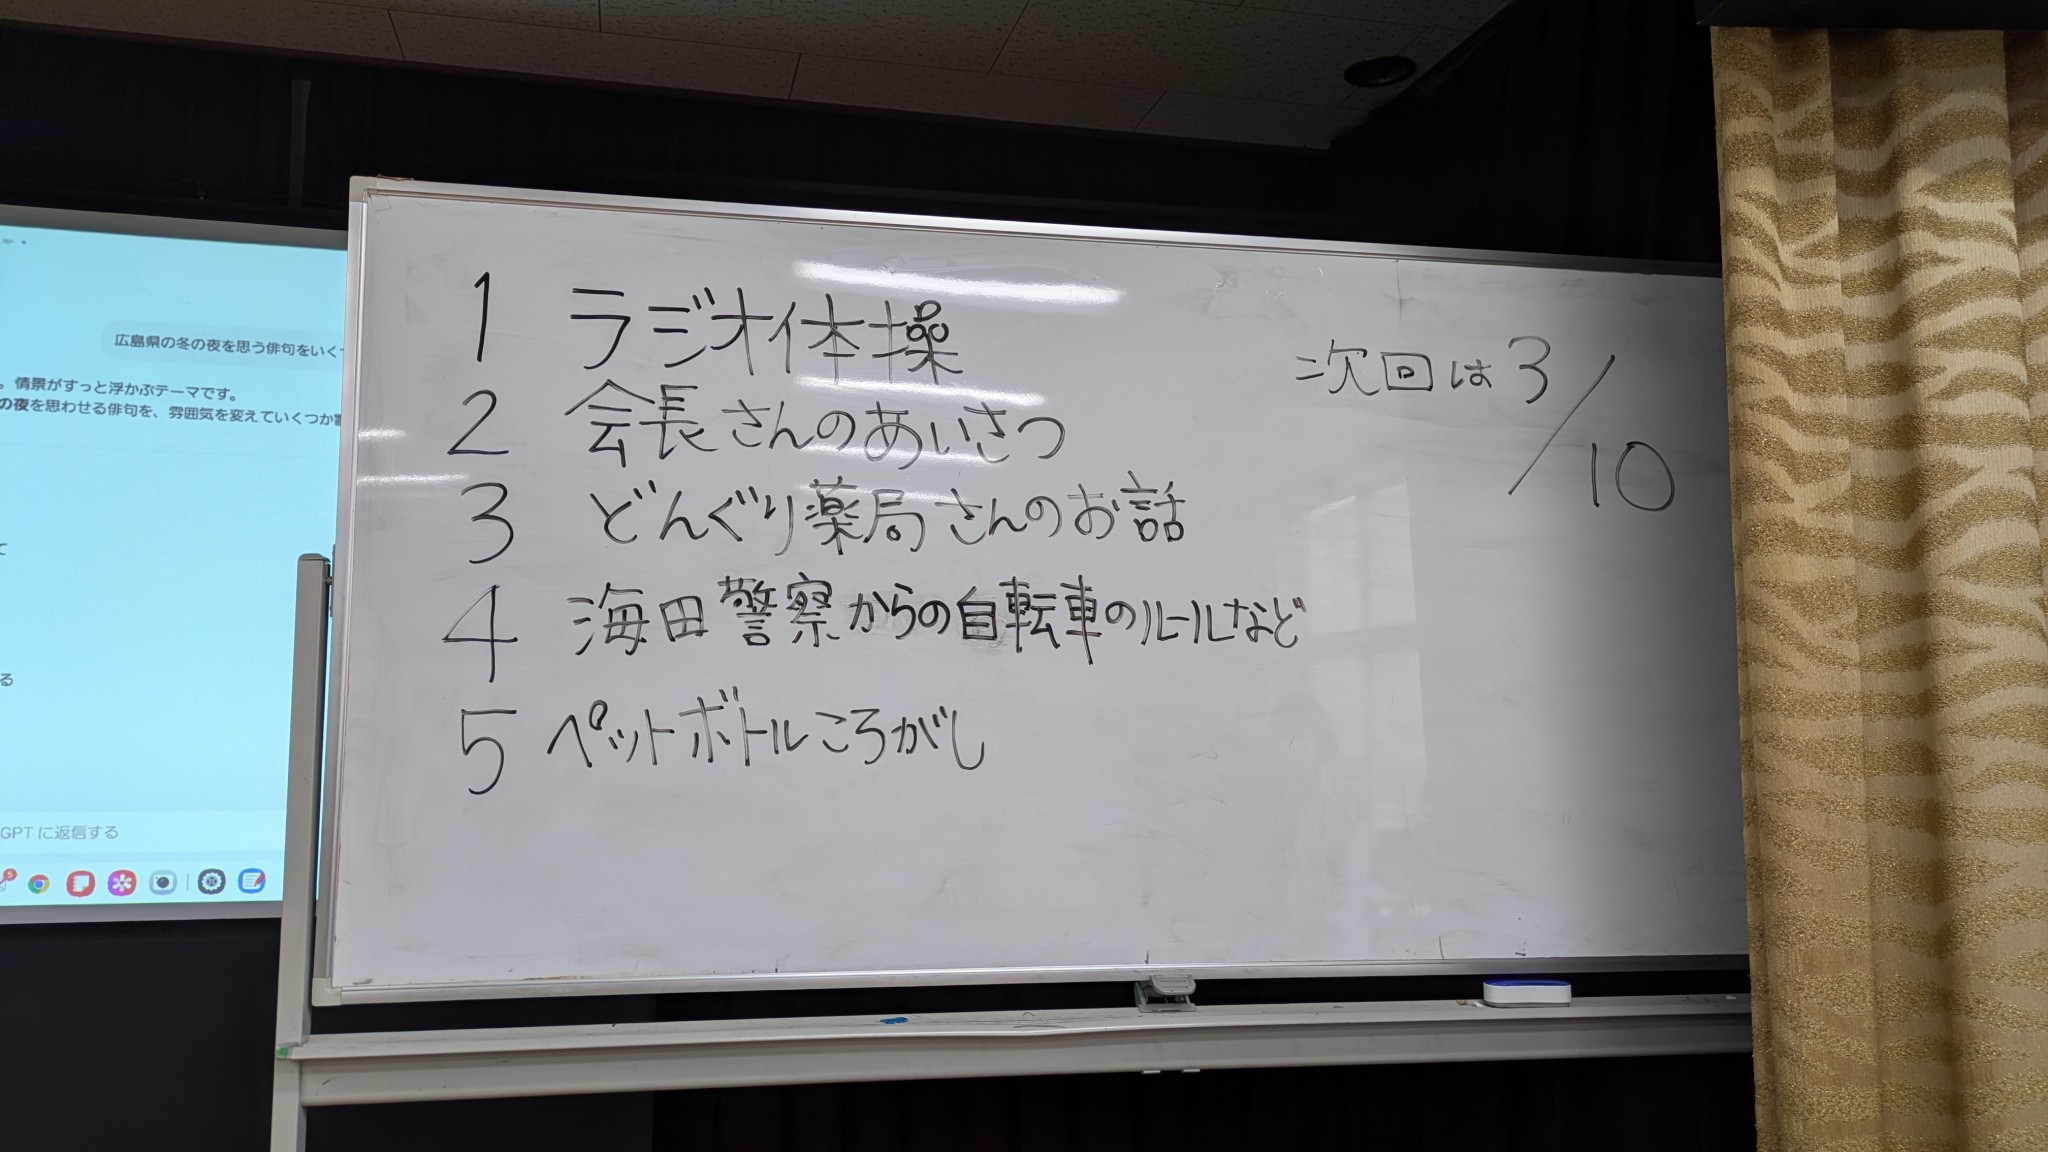 1 ラジオ体操
2 会長さんのあいさつ
3 どんぐり薬局さんのお話
4 海田警察からの自転車のルールなど
5 ペットボトルころがし
次回は3/10
広島県の冬の夜を思う俳句をいく
。情景がすっと浮かぶテーマです。
の夜を思わせる俳句を、雰囲気を変えていくつか
て
る
GPT に返信する
5